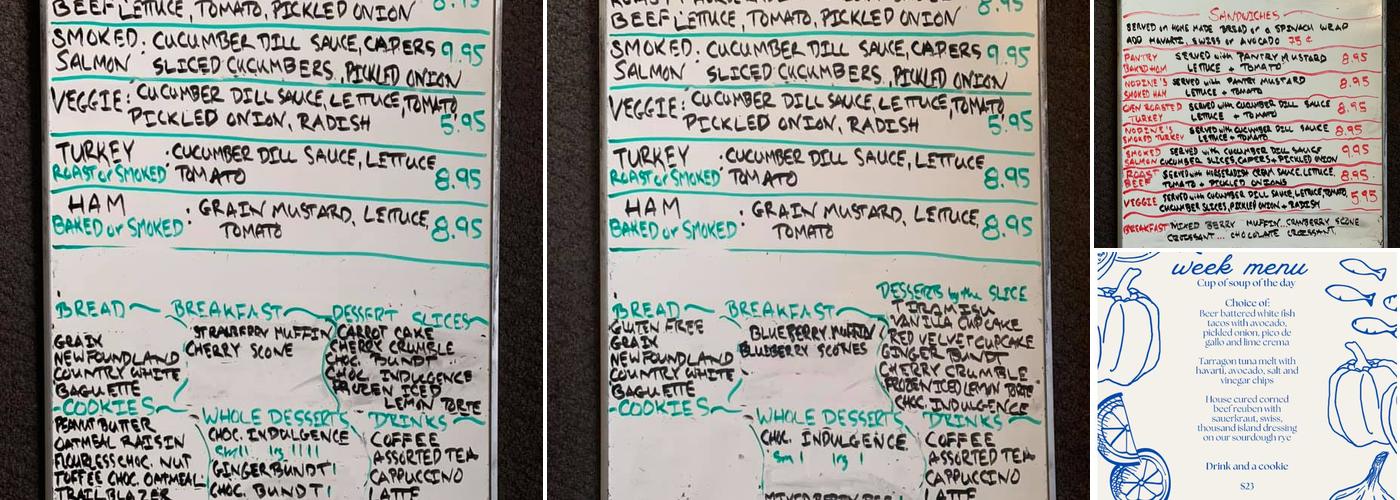 BEEF LETTUCE, TOMATO, PICKLED ONION 8.95
SMOKED: CUCUMBER DILL SAUCE, CAPERS 9.95
SALMON SLICED CUCUMBERS, PICKLED ONION
VEGGIE: CUCUMBER DILL SAUCE, LETTUCE, TOMATO,
PICKLED ONION, RADISH 5.95
TURKEY : CUCUMBER DILL SAUCE, LETTUCE
ROAST or SMOKED TOMATO 8.95
HAM : GRAIN MUSTARD, LETTUCE,
BAKED or SMOKED TOMATO 8.95
BREAD
GRAIN
NEWFOUNDLAND
COUNTRY WHITE
BAGUETTE
BREAKFAST
STRAWBERRY MUFFIN
CHERRY SCONE
DESSERT SLICES
CARROT CAKE
CHERRY CRUMBLE
CHOC. BUNDT
CHOC. INDULGENCE
FROZEN ICED
LEMON TORTE
COOKIES
PEANUT BUTTER
OATMEAL RAISIN
FLOURLESS CHOC. NUT
TOFFEE CHOC. OATMEAL
TRAIL BLAZER
WHOLE DESSERTS
CHOC. INDULGENCE
GINGER BUNDT
CHOC. BUNDT
DRINKS
COFFEE
ASSORTED TEA
CAPPUCCINO
LATTE
BEEF LETTUCE, TOMATO, PICKLED ONION 8.95
SMOKED: CUCUMBER DILL SAUCE, CAPERS 9.95
SALMON SLICED CUCUMBERS, PICKLED ONION
VEGGIE: CUCUMBER DILL SAUCE, LETTUCE, TOMATO,
PICKLED ONION, RADISH 5.95
TURKEY : CUCUMBER DILL SAUCE, LETTUCE
ROAST or SMOKED TOMATO 8.95
HAM : GRAIN MUSTARD, LETTUCE,
BAKED or SMOKED TOMATO 8.95
BREAD
GLUTEN FREE
GRAIN
NEWFOUNDLAND
COUNTRY WHITE
BAGUETTE
BREAKFAST
BLUEBERRY MUFFIN
BLUEBERRY SCONES
DESSERTS by the SLICE
TIRAMISU
VANILLA CUPCAKE
RED VELVET CUPCAKE
GINGER BUNDT
CHERRY CRUMBLE
FROZEN ICED LEMON TORTE
CHOC. INDULGENCE
COOKIES
WHOLE DESSERTS
CHOC. INDULGENCE
sm 1 lrg 1
DRINKS
COFFEE
ASSORTED TEA
CAPPUCCINO
LATTE
SANDWICHES
SERVED on HOME MADE BREAD or a SPINACH WRAP
ADD HAVARTI, SWISS or AVOCADO 75¢
PANTRY BAKED HAM SERVED with PANTRY MUSTARD
LETTUCE + TOMATO 8.95
NODINE'S SMOKED HAM SERVED with PANTRY MUSTARD
LETTUCE + TOMATO 8.95
OVEN ROASTED TURKEY SERVED with CUCUMBER DILL SAUCE
LETTUCE + TOMATO 8.95
NODINE'S SMOKED TURKEY SERVED with CUCUMBER DILL SAUCE
LETTUCE + TOMATO 8.95
SMOKED SALMON SERVED with CUCUMBER DILL SAUCE
CUCUMBER SLICES, CAPERS + PICKLED ONION 9.95
ROAST BEEF SERVED with HORSERADISH CREAM SAUCE, LETTUCE,
TOMATO + PICKLED ONIONS 8.95
VEGGIE SERVED with CUCUMBER DILL SAUCE, LETTUCE, TOMATO,
CUCUMBER SLICES, PICKLED ONION + RADISH 5.95
BREAKFAST MIXED BERRY MUFFIN... CRANBERRY SCONE
CROISSANT... CHOCOLATE CROISSANT
week menu
Cup of soup of the day
Choice of:
Beer battered white fish
tacos with avocado,
pickled onion, pico de
gallo and lime crema
Tarragon tuna melt with
havarti, avocado, salt and
vinegar chips
House cured corned
beef reuben with
sauerkraut, swiss,
thousand island dressing
on our sourdough rye
Drink and a cookie
$23